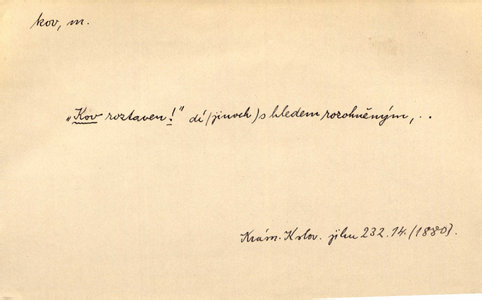 kov, m.
„Kov roztaven!" dí (jinoch) s hledem rozohněným, ..
Krám. Krlov. jihu 232. 14. (1880).